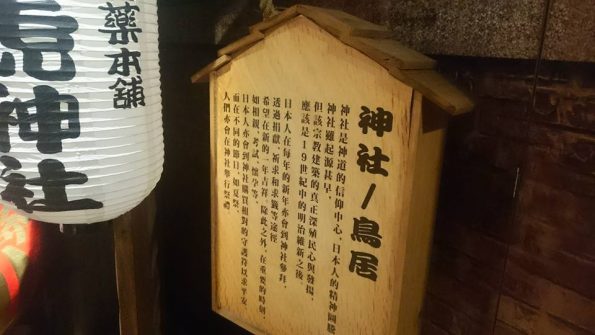 藥本舖
神社
神社/鳥居
神社是神道的信仰中心,日本人的精神圖騰
神社雖起源甚早,
但該宗教建築的真正深殖民心與發揚,
應該是19世紀中的明治維新之後。
日本人在每年的新年亦會到神社參拜,
透過捐獻、祈求和求籤等途徑
希望在新的一年吉祥。除此之外,在重要的時刻,
如相親、考試、懷孕等,
日本人亦會到神社購買相對的守護符以求平安
而在不同的節日,如夏祭,
人們亦會在神社舉行祭禮